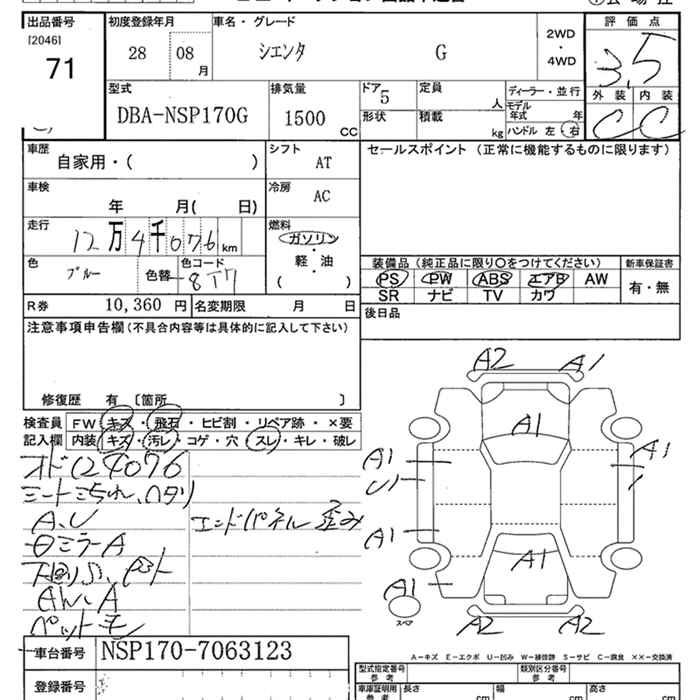 出品番号 初度登録年月 車名・グレード 評価点
[2046] 28 08 シエンタ G 2WD・4WD 3.5
71 月
型式 排気量 ドア 5 定員 人 ディーラー・並行 外装 内装
DBA-NSP170G 1500 CC 形状 積載 kg モデル年式 年 C C
ハンドル 左・右
車歴 シフト セールスポイント (正常に機能するものに限ります)
自家用・( ) AT
車検 冷房
年 月( 日) AC
走行 燃料
12万4千076km ガソリン・軽・油
( )
色 色替 色コード 装備品 (純正品に限り○をつけてください) 新車保証書
ブルー 8T7 PS PW ABS エアB AW 有・無
SR ナビ TV カワ
R券 10,360 円 名変期限 月 日 後日品
注意事項申告欄 (不具合内容等は具体的に記入して下さい)
修復歴 有 〔箇所 〕
検査員 FW キズ・飛石・ヒビ割・リペア跡・×要
記入欄 内装 キズ・汚レ・コゲ・穴・スレ・キレ・破レ
オド124076
A.U エンドパネル 歪み
ミラーA
A2 A1
A1
A1 A1
U1
A1
A1
A1
スペア
A2 A2
A-キズ E-エクボ U-凹み W-補修跡 S-サビ C-腐食 ××-交換済
車台番号 NSP170-7063123
登録番号
型式指定番号 参考 類別区分番号 参考
車庫証明用 参考 長さ cm 幅 cm 高さ cm